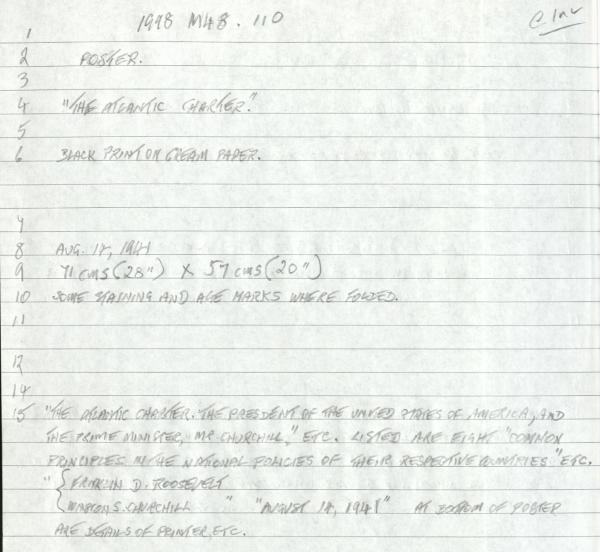 1998 M48.110
C Inv
1
2 POSTER.
3
4 "THE ATLANTIC CHARTER."
5
6 BLACK PRINT ON CREAM PAPER.
7
8 AUG. 14, 1941
9 71 cms (28") X 57 cms (20")
10 SOME STAINING AND AGE MARKS WHERE FOLDED.
11
12
14
15 "THE ATLANTIC CHARTER. THE PRESIDENT OF THE UNITED STATES OF AMERICA, AND
THE PRIME MINISTER, MR CHURCHILL," ETC. LISTED ARE EIGHT "COMMON
PRINCIPLES IN THE NATIONAL POLICIES OF THEIR RESPECTIVE COUNTRIES" ETC.
" { FRANKLIN D. ROOSEVELT
WINSTON S. CHURCHILL " "AUGUST 14, 1941" AT BOTTOM OF POSTER
ARE DETAILS OF PRINTER, ETC.